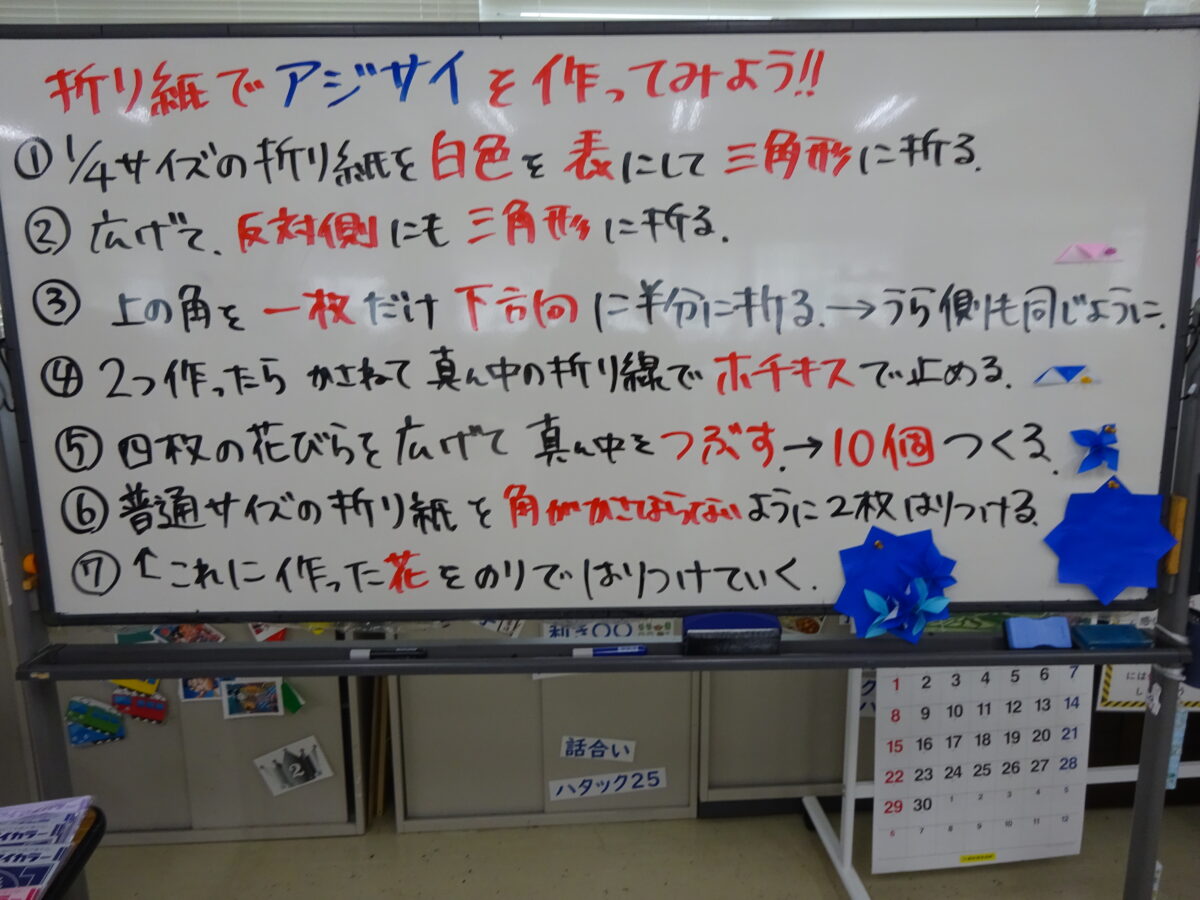 折り紙でアジサイを作ってみよう!!
① 1/4サイズの折り紙を白色を表にして三角形に折る.
② 広げて、反対側にも三角形に折る.
③ 上の角を一枚だけ下方向に半分に折る.→うら側も同じように.
④ 2つ作ったらかさねて真ん中の折り線でホチキスで止める.
⑤ 四枚の花びらを広げて真ん中をつぶす.→10個つくる.
⑥ 普通サイズの折り紙を角がかさならないように2枚はりつける.
⑦ ↑これに作った花をのりではりつけていく.
利き〇〇
話合い
ハタック25
2
1 2 3 4 5 6 7
8 9 10 11 12 13 14
15 16 17 18 19 20 21
22 23 24 25 26 27 28
29 30 1 2 3 4 5
6 7 8 9 10 11 12
には
イカラー
イカラー